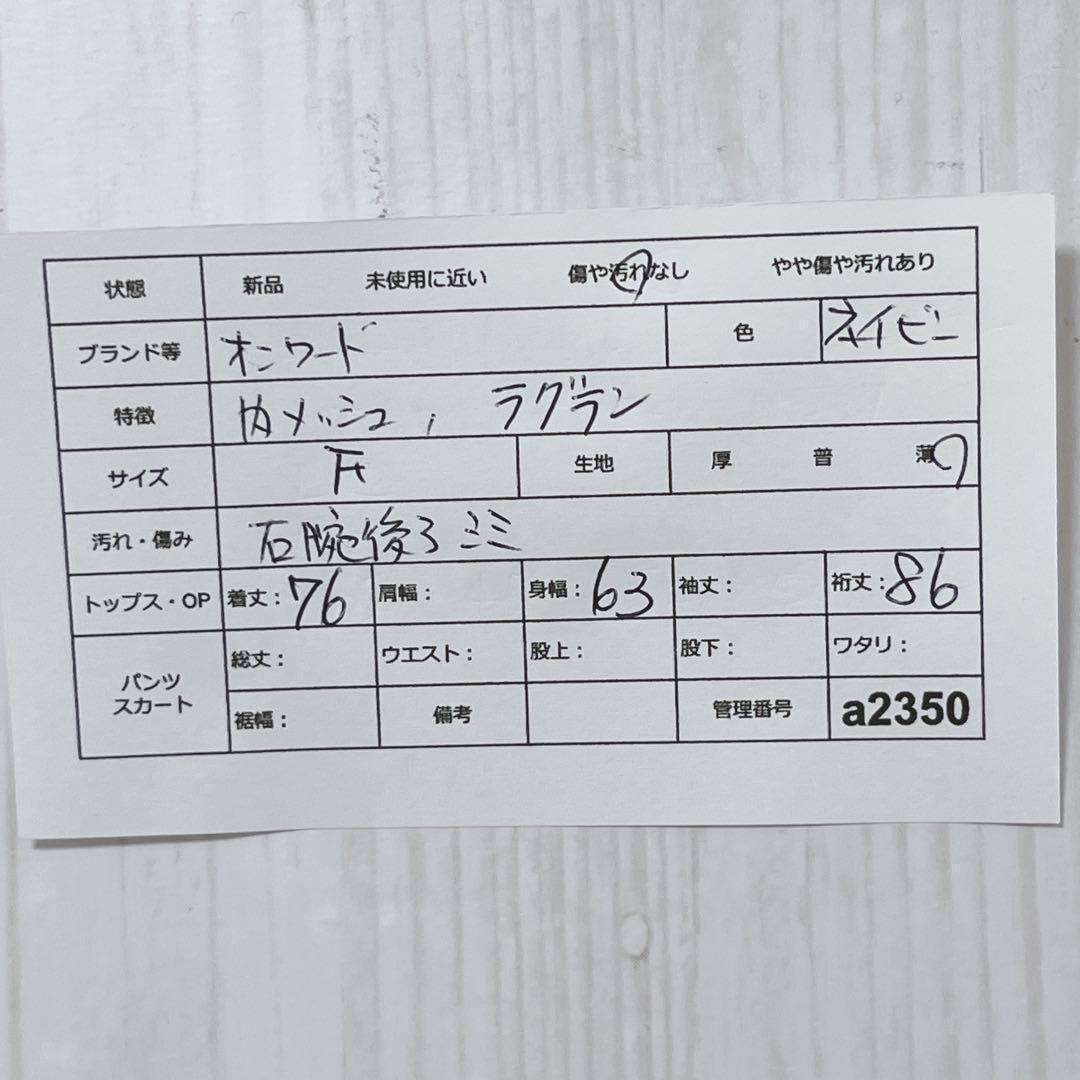 状態 新品 未使用に近い 傷や汚れなし やや傷や汚れあり
ブランド等 オンワード 色 ネイビー
特徴 メッシュ, ラグラン
サイズ F 生地 厚 普 薄
汚れ・傷み 右腕後ろ シミ
トップス・OP 着丈:76 肩幅: 身幅:63 袖丈: 裄丈:86
パンツ スカート 総丈: ウエスト: 股上: 股下: ワタリ:
裾幅: 備考 管理番号 a2350